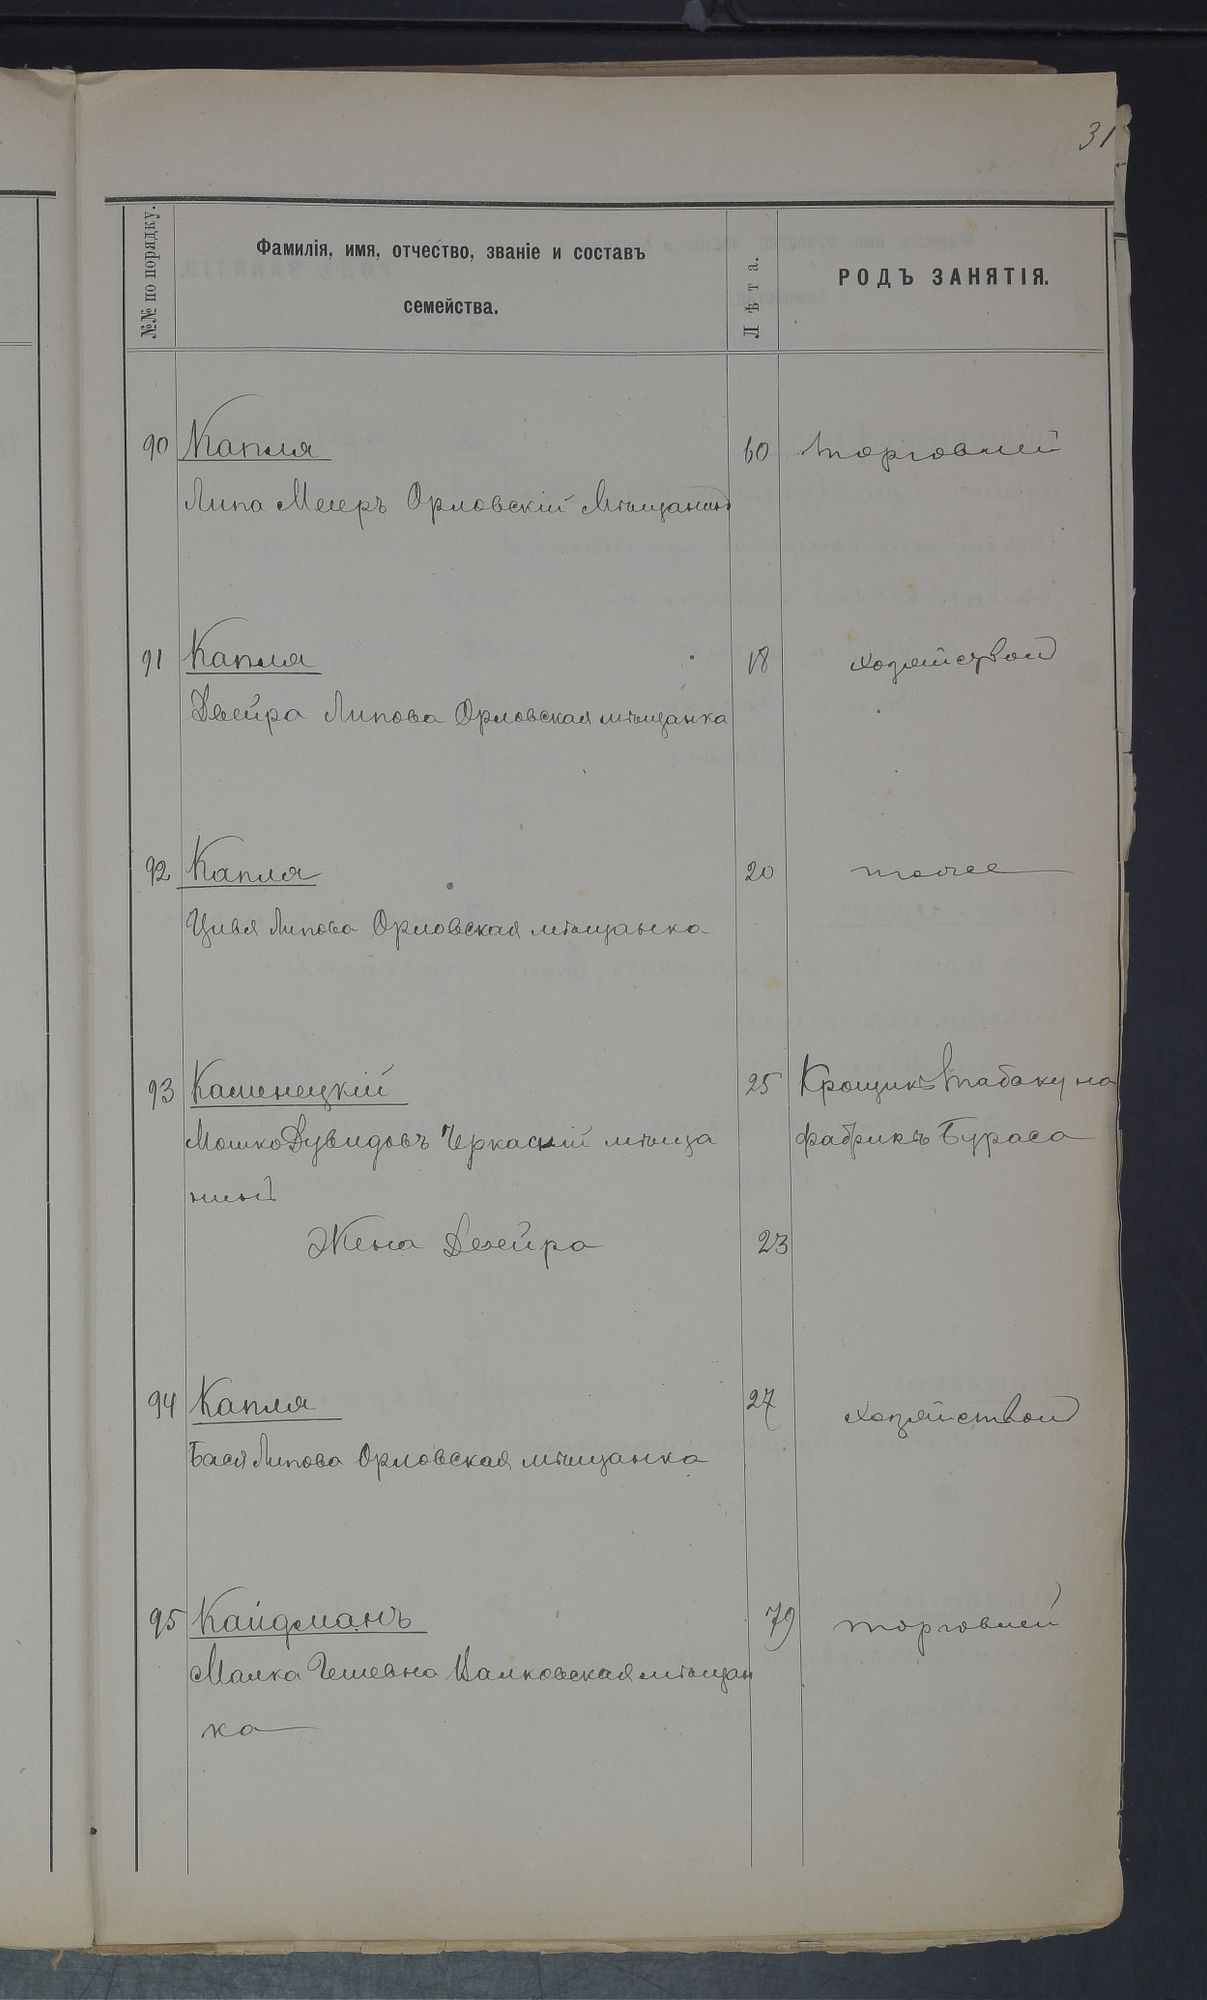 31
№№ по порядку.
Фамилія, имя, отчество, званіе и составъ
семейства.
Лѣта.
РОДЪ ЗАНЯТІЯ.
90 Капля 60 торговлей
Липа Мееръ Орловскій Мѣщанинъ
91 Капля 18 хозяйствомъ
Двейра Липова Орловская мѣщанка
92 Капля 20 тоже
Цивья Липова Орловская мѣщанка
93 Каменецкій 25 Крощикъ табаку на
Мошко Дувидовъ Черкаскій мѣща фабрикѣ Бураса
нинъ
Жена Двейра 23
94 Капля 27 хозяйствомъ
Бася Липова Орловская мѣщанка
95 Кайдманъ 79 торговлей
Малка Гешевна Валковская мѣщан
ка